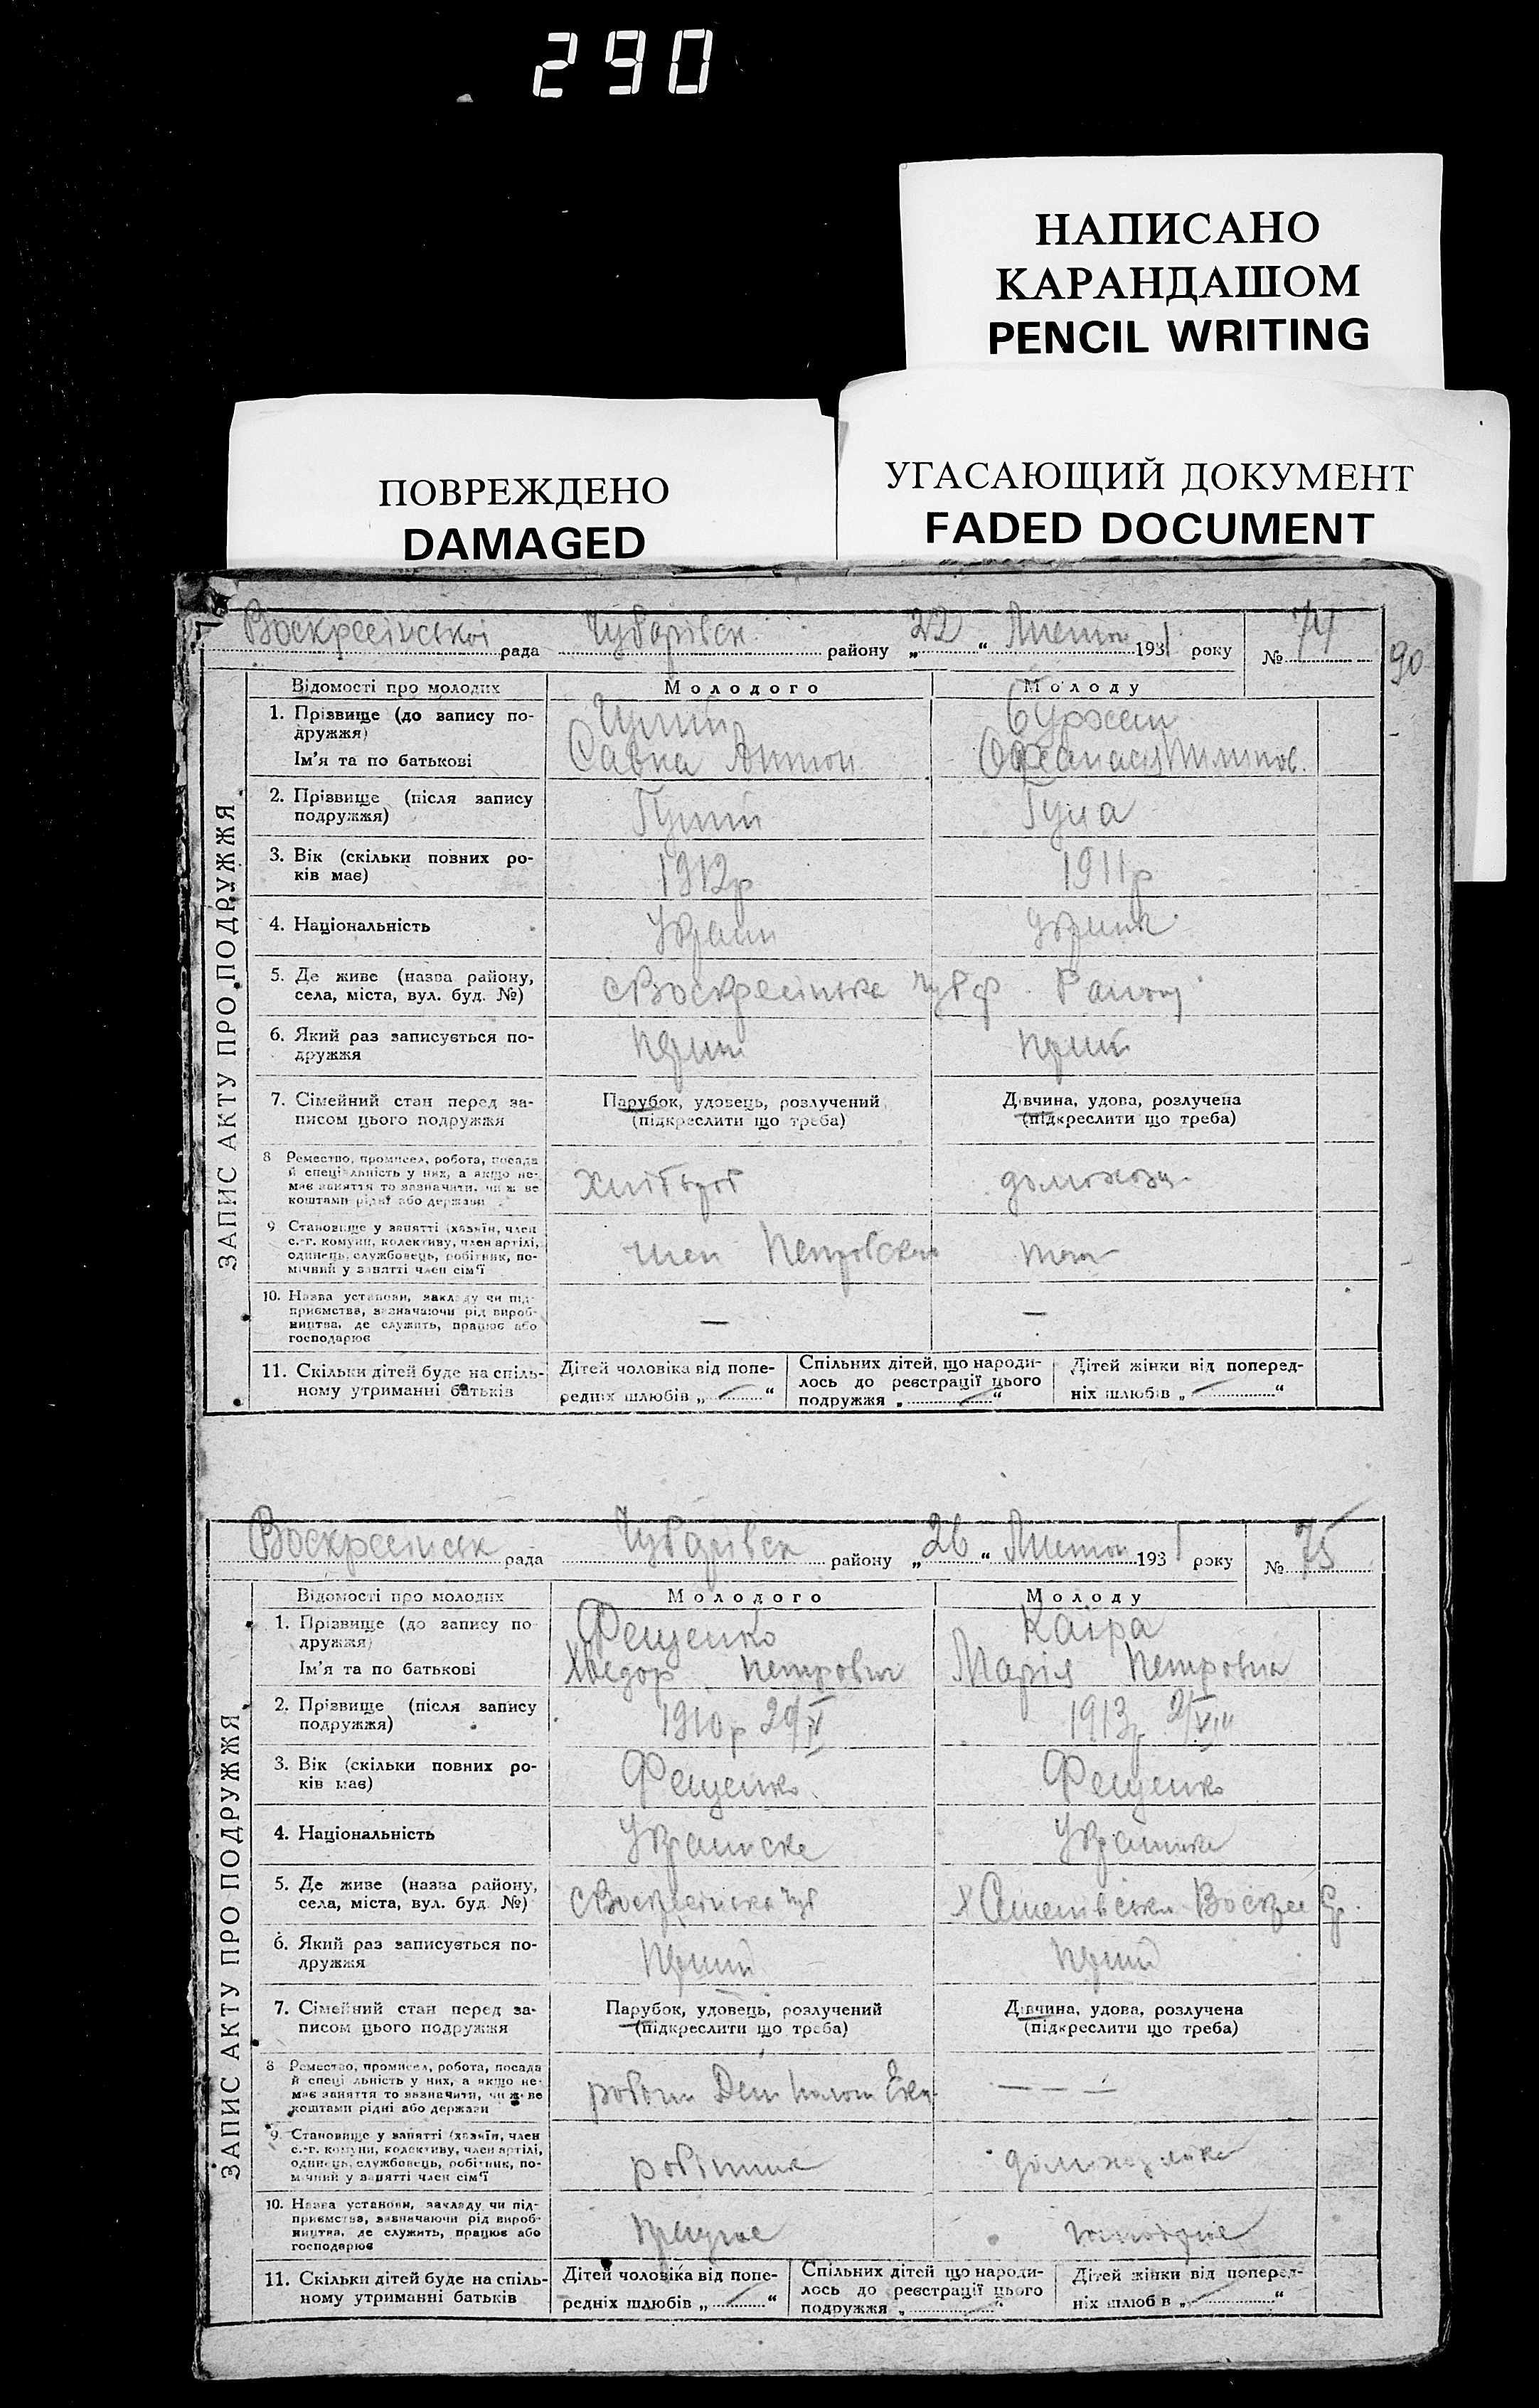 290
НАПИСАНО
КАРАНДАШОМ
PENCIL WRITING
ПОВРЕЖДЕНО
DAMAGED
УГАСАЮЩИЙ ДОКУМЕНТ
FADED DOCUMENT
Воскресінської рада Чубарівск району „22“ Листоп 1931 року № 74
90
ЗАПИС АКТУ ПРО ПОДРУЖЖЯ
Відомості про молодих Молодого Молоду
1. Прізвище (до запису по-
дружжя)
Ім'я та по батькові Савка Антон
2. Прізвище (після запису
подружжя)
3. Вік (скільки повних ро-
ків має) 1912р 1911р
4. Національність
5. Де живе (назва району,
села, міста, вул. буд. №) с Воскресінська Чуб р. Району
6. Який раз записується по-
дружжя
7. Сімейний стан перед за-
писом цього подружжя
Парубок, удовець, розлучений
(підкреслити що треба)
Дівчина, удова, розлучена
(підкреслити що треба)
8 Ремество, промисел, робота, посада
й спеціальність у них, а якщо не-
має заняття то зазначити, чи ж не
коштами рідні або держави Хлібороб
9 Становище у занятті (хазяїн, член
с.-г. комуни, колективу, член артілі,
одинець, службовець, робітник, по-
мічний у занятті член сім'ї член
10. Назва установи, закладу чи під-
приємства, зазначаючи рід вироб-
ництва, де служить, працює або
господарює — —
11. Скільки дітей буде на спіль-
ному утриманні батьків
Дітей чоловіка від попе-
редніх шлюбів „ “
Спільних дітей, що народи-
лось до реєстрації цього
подружжя „ “
Дітей жінки від поперед-
ніх шлюбів „ “
Воскресінськ рада Чубарівск району „26“ Листоп 1931 року № 75
ЗАПИС АКТУ ПРО ПОДРУЖЖЯ
Відомості про молодих Молодого Молоду
1. Прізвище (до запису по-
дружжя) Фещенко Каіра
Ім'я та по батькові Хведор Петрович Марія Петровна
2. Прізвище (після запису
подружжя) 1910р 1913р
3. Вік (скільки повних ро-
ків має) Фещенко Фещенко
4. Національність Украінска Украінка
5. Де живе (назва району,
села, міста, вул. буд. №) с Воскресінська Чуб
6. Який раз записується по-
дружжя
7. Сімейний стан перед за-
писом цього подружжя
Парубок, удовець, розлучений
(підкреслити що треба)
Дівчина, удова, розлучена
(підкреслити що треба)
8 Ремество, промисел, робота, посада
й спеціальність у них, а якщо не-
має заняття то зазначити, чи ж не
коштами рідні або держави — — —
9. Становище у занятті (хазяїн, член
с.-г. комуни, колективу, член артілі,
одинець, службовець, робітник, по-
мічний у занятті член сім'ї робітник
10. Назва установи, закладу чи під-
приємства, зазначаючи рід вироб-
ництва, де служить, працює або
господарює працює
11. Скільки дітей буде на спіль-
ному утриманні батьків
Дітей чоловіка від попе-
редніх шлюбів „ “
Спільних дітей що народи-
лось до реєстрації цього
подружжя „ “
Дітей жінки від поперед-
ніх шлюбів „ “